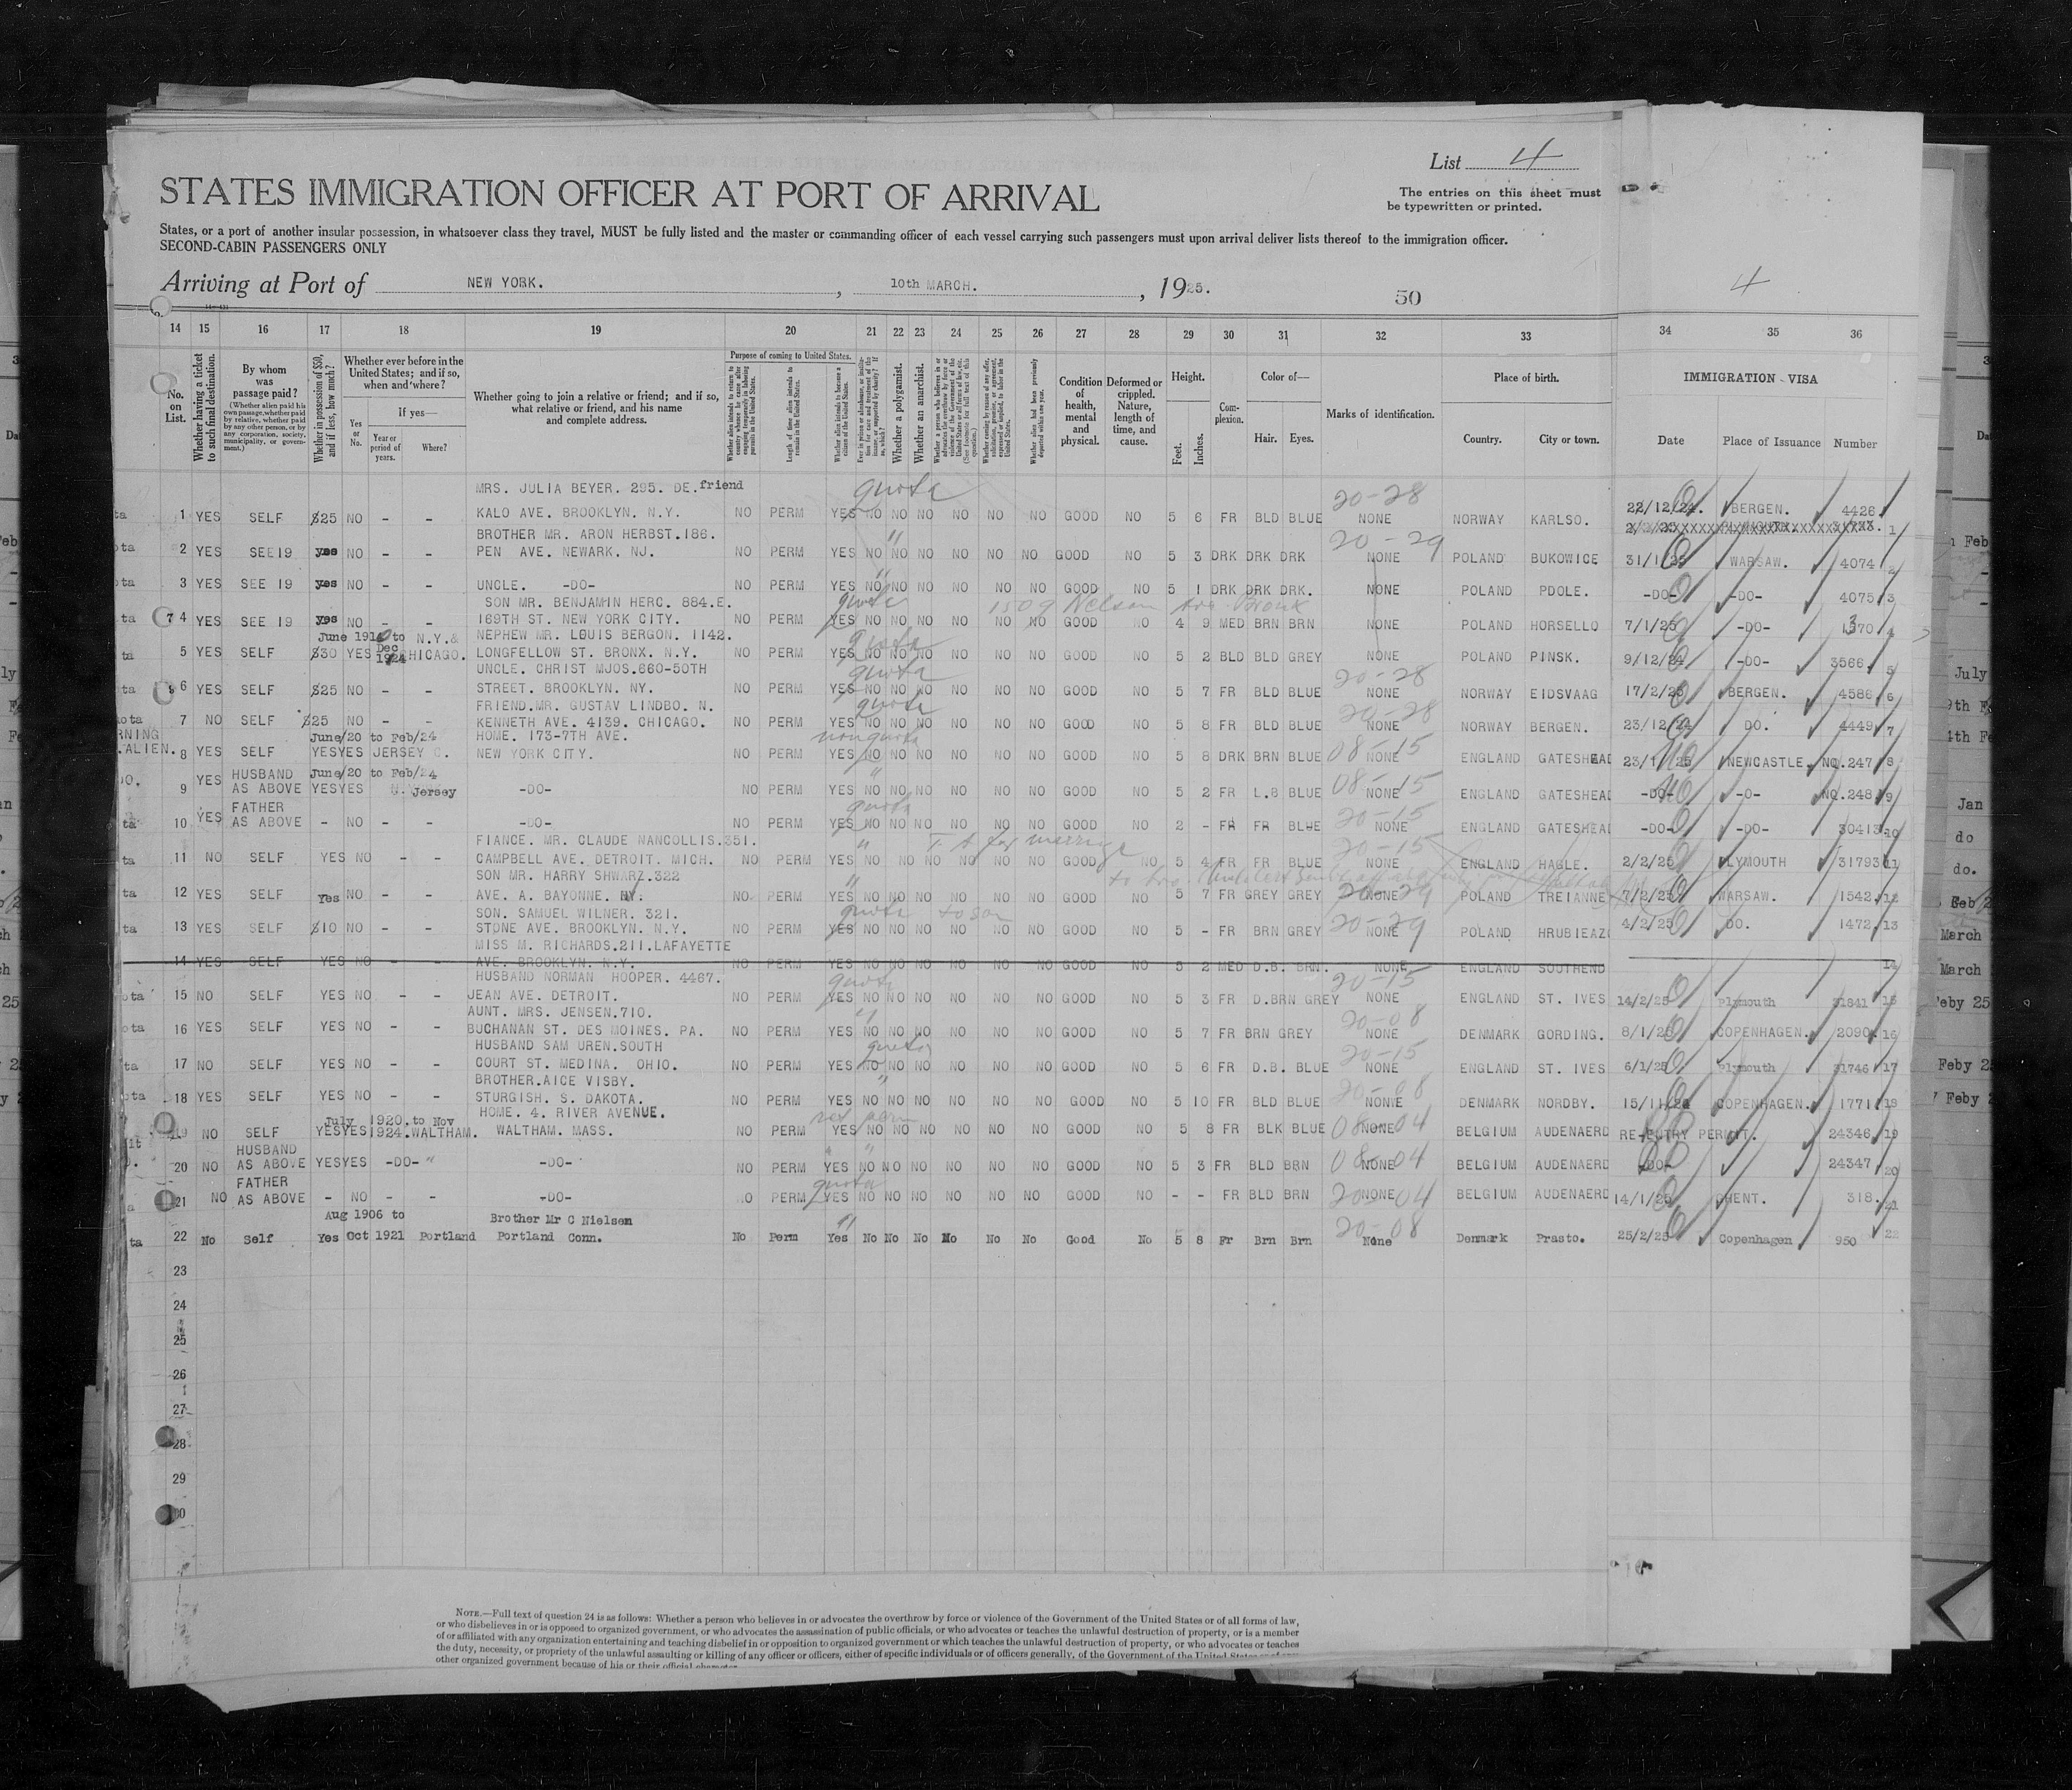 List 4
STATES IMMIGRATION OFFICER AT PORT OF ARRIVAL
The entries on this sheet must
be typewritten or printed.
States, or a port of another insular possession, in whatsoever class they travel, MUST be fully listed and the master or commanding officer of each vessel carrying such passengers must upon arrival deliver lists thereof to the immigration officer.
SECOND-CABIN PASSENGERS ONLY
Arriving at Port of NEW YORK. , 10th MARCH. , 1925.
50
4
14 15 16 17 18 19 20 21 22 23 24 25 26 27 28 29 30 31 32 33 34 35 36
No. on List.
Whether having a ticket to such final destination.
By whom was passage paid?
(Whether alien paid his own passage, whether paid by relative, whether paid by any other person, or by any corporation, society, municipality, or government.)
Whether in possession of $50, and if less, how much?
Whether ever before in the United States; and if so, when and where?
Yes or No.
If yes—
Year or period of years.
Where?
Whether going to join a relative or friend; and if so, what relative or friend, and his name and complete address.
Purpose of coming to United States.
Length of time alien intends to remain in the United States.
Whether alien intends to become a citizen of the United States.
Whether a polygamist.
Whether an anarchist.
Condition of health, mental and physical.
Deformed or crippled. Nature, length of time, and cause.
Height.
Feet.
Inches.
Complexion.
Color of—
Hair.
Eyes.
Marks of identification.
Place of birth.
Country.
City or town.
IMMIGRATION VISA
Date
Place of Issuance
Number
MRS. JULIA BEYER. 295. DE. friend quota 20-28
1 YES SELF $25 NO - - KALO AVE. BROOKLYN. N.Y. NO PERM YES NO NO NO NO NO NO GOOD NO 5 6 FR BLD BLUE NONE NORWAY KARLSO. 22/12/24. BERGEN. 4426 1
BROTHER MR. ARON HERBST.186. " 20-29
2 YES SEE19 yes NO - - PEN AVE. NEWARK. NJ. NO PERM YES NO NO NO NO NO NO GOOD NO 5 3 DRK DRK DRK NONE POLAND BUKOWICE 31/1/25 WARSAW. 4074 2
3 YES SEE 19 yes NO - - UNCLE. -DO- NO PERM YES NO NO NO NO NO NO GOOD NO 5 1 DRK DRK DRK. NONE POLAND PDOLE. -DO- -DO- 4075 3
SON MR. BENJAMIN HERC. 884.E. quota 1509 Nelson Ave Bronx
4 YES SEE 19 yes NO - - 169TH ST. NEW YORK CITY. NO PERM YES NO NO NO NO NO NO GOOD NO 4 9 MED BRN BRN NONE POLAND HORSELLO 7/1/25 -DO- 1370 4
June 1910 to N.Y.& NEPHEW MR. LOUIS BERGON. 1142. quota
5 YES SELF $30 YES Dec 1924 CHICAGO. LONGFELLOW ST. BRONX. N.Y. NO PERM YES NO NO NO NO NO NO GOOD NO 5 2 BLD BLD GREY NONE POLAND PINSK. 9/12/24 -DO- 3566. 5
UNCLE. CHRIST MJOS.660-50TH quota 20-28
6 YES SELF $25 NO - - STREET. BROOKLYN. NY. NO PERM YES NO NO NO NO NO NO GOOD NO 5 7 FR BLD BLUE NONE NORWAY EIDSVAAG 17/2/25 BERGEN. 4586 6
FRIEND.MR. GUSTAV LINDBO. N. quota 20-28
7 NO SELF $25 NO - - KENNETH AVE. 4139. CHICAGO. NO PERM YES NO NO NO NO NO NO GOOD NO 5 8 FR BLD BLUE NONE NORWAY BERGEN. 23/12/24 DO. 4449 7
June/20 to Feb/24 HOME. 173-7TH AVE. nonquota 08-15
8 YES SELF YES YES JERSEY C. NEW YORK CITY. NO PERM YES NO NO NO NO NO NO GOOD NO 5 8 DRK BRN BLUE NONE ENGLAND GATESHEAD 23/1/25 NEWCASTLE. NO.247 8
HUSBAND June/20 to Feb/24 " 08-15
9 YES AS ABOVE YES YES N. Jersey -DO- NO PERM YES NO NO NO NO NO NO GOOD NO 5 2 FR L.B BLUE NONE ENGLAND GATESHEAD -DO- -O- NO.248 9
FATHER quota 20-15
10 YES AS ABOVE - NO - - -DO- NO PERM YES NO NO NO NO NO NO GOOD NO 2 - FR FR BLUE NONE ENGLAND GATESHEAD -DO- -DO- 30413 10
FIANCE. MR. CLAUDE NANCOLLIS.351. " T.A for marriage 20-15
11 NO SELF YES NO - - CAMPBELL AVE. DETROIT. MICH. NO PERM YES NO NO NO NO NO NO GOOD NO 5 4 FR FR BLUE NONE ENGLAND HAGLE. 2/2/25 PLYMOUTH 31793 11
SON MR. HARRY SHWARZ.322 "
12 YES SELF Yes NO - - AVE. A. BAYONNE. NY. NO PERM YES NO NO NO NO NO NO GOOD NO 5 7 FR GREY GREY NONE 20-29 POLAND TREIANNE 7/2/25 WARSAW. 1542 12
SON. SAMUEL WILNER. 321. quota to son 20-29
13 YES SELF $10 NO - - STONE AVE. BROOKLYN. N.Y. NO PERM YES NO NO NO NO NO NO GOOD NO 5 - FR BRN GREY NONE POLAND HRUBIEAZ 4/2/25 DO. 1472. 13
MISS M. RICHARDS.211.LAFAYETTE
14 YES SELF YES NO - - AVE. BROOKLYN. N.Y. NO PERM YES NO NO NO NO NO NO GOOD NO 5 2 MED D.B. BRN. NONE ENGLAND SOUTHEND 14
HUSBAND NORMAN HOOPER. 4467. quota 20-15
15 NO SELF YES NO - - JEAN AVE. DETROIT. NO PERM YES NO NO NO NO NO NO GOOD NO 5 3 FR D.BRN GREY NONE ENGLAND ST. IVES 14/2/25 Plymouth 31841 15
AUNT. MRS. JENSEN.710. " 20-08
16 YES SELF YES NO - - BUCHANAN ST. DES MOINES. PA. NO PERM YES NO NO NO NO NO NO GOOD NO 5 7 FR BRN GREY NONE DENMARK GORDING. 8/1/25 COPENHAGEN. 2090 16
HUSBAND SAM UREN.SOUTH quota 20-15
17 NO SELF YES NO - - COURT ST. MEDINA. OHIO. NO PERM YES NO NO NO NO NO NO GOOD NO 5 6 FR D.B. BLUE NONE ENGLAND ST. IVES 6/1/25 Plymouth 31746 17
BROTHER.AICE VISBY. " 20-08
18 YES SELF YES NO - - STURGISH. S. DAKOTA. NO PERM YES NO NO NO NO NO NO GOOD NO 5 10 FR BLD BLUE NONE DENMARK NORDBY. 15/11/24 COPENHAGEN. 1771 18
July 1920. to Nov HOME. 4. RIVER AVENUE.
19 NO SELF YES YES 1924. WALTHAM. WALTHAM. MASS. NO PERM YES NO NO NO NO NO NO GOOD NO 5 8 FR BLK BLUE 08-04 NONE BELGIUM AUDENAERD RE-ENTRY PERMIT. 24346 19
HUSBAND "
20 NO AS ABOVE YES YES -DO- " -DO- NO PERM YES NO NO NO NO NO NO GOOD NO 5 3 FR BLD BRN 08-04 NONE BELGIUM AUDENAERD -DO- 24347 20
FATHER quota
21 NO AS ABOVE - NO - - -DO- NO PERM YES NO NO NO NO NO NO GOOD NO - - FR BLD BRN 20-04 NONE BELGIUM AUDENAERD 14/1/25 GHENT. 318. 21
Aug 1906 to Brother Mr C Nielsen " 20-08
22 No Self Yes Oct 1921 Portland Portland Conn. No Perm Yes No No No No No No Good No 5 8 Fr Brn Brn None Denmark Prasto. 25/2/25 Copenhagen 950 22
23
24
25
26
27
28
29
30
NOTE.—Full text of question 24 is as follows: Whether a person who believes in or advocates the overthrow by force or violence of the Government of the United States or of all forms of law,
or who disbelieves in or is opposed to organized government, or who advocates the assassination of public officials, or who advocates or teaches the unlawful destruction of property, or is a member
of or affiliated with any organization entertaining and teaching disbelief in or opposition to organized government or which teaches the unlawful destruction of property, or who advocates or teaches
the duty, necessity, or propriety of the unlawful assaulting or killing of any officer or officers, either of specific individuals or of officers generally, of the Government of the United States
other organized government because of his or their official character